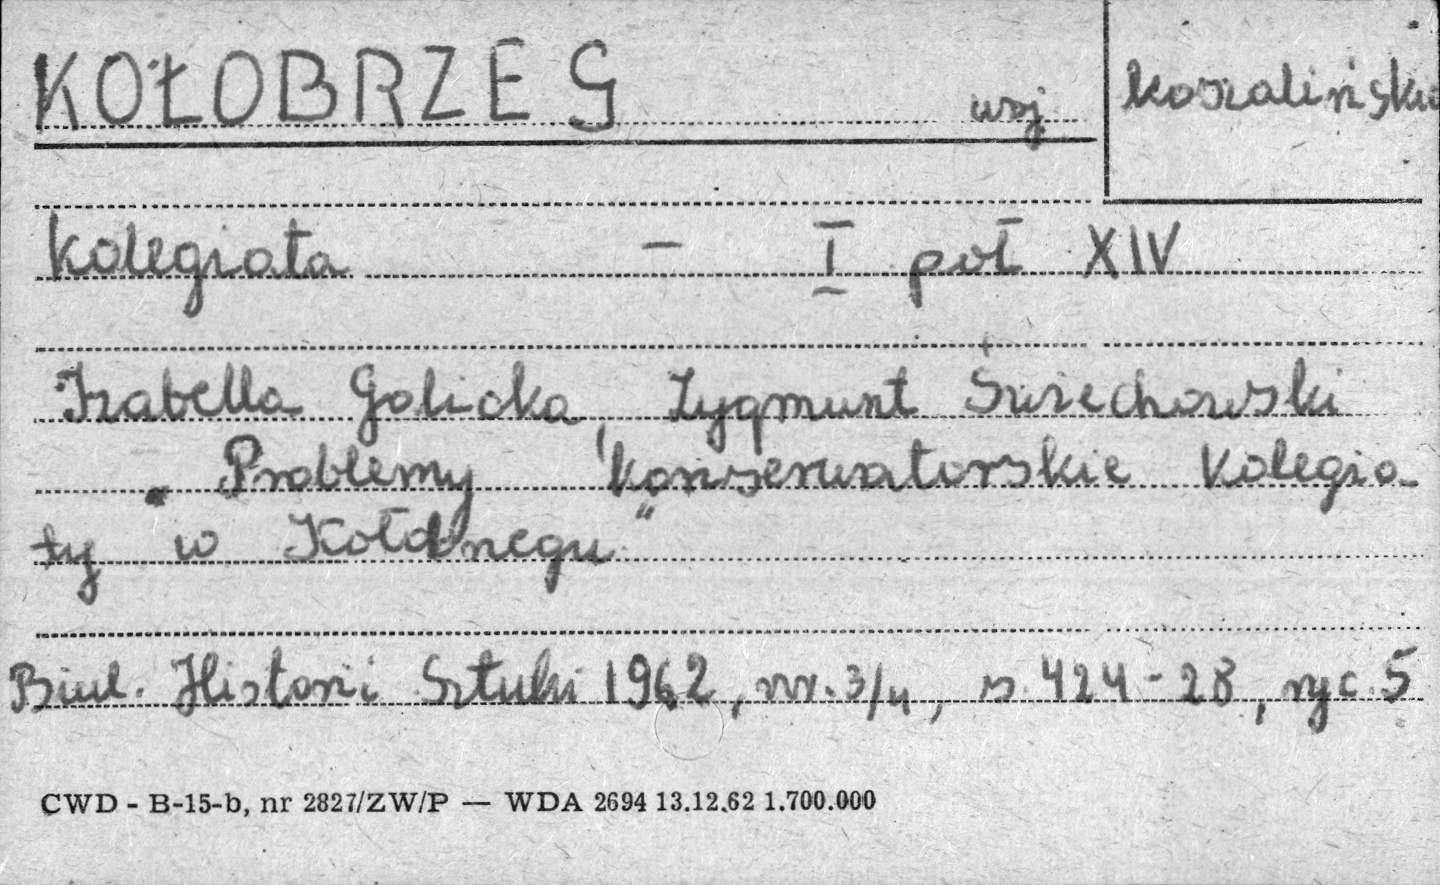 KOŁOBRZEG woj koszalińskie
Kolegiata – I poł XIV
Izabella Galicka, Zygmunt Świechowski
„Problemy konserwatorskie Kolegia-
ty w Kołobrzegu"
Biul. Historii Sztuki 1962, nr. 3/4, s. 424-28, ryc 5
CWD - B-15-b, nr 2827/ZW/P — WDA 2694 13.12.62 1.700.000